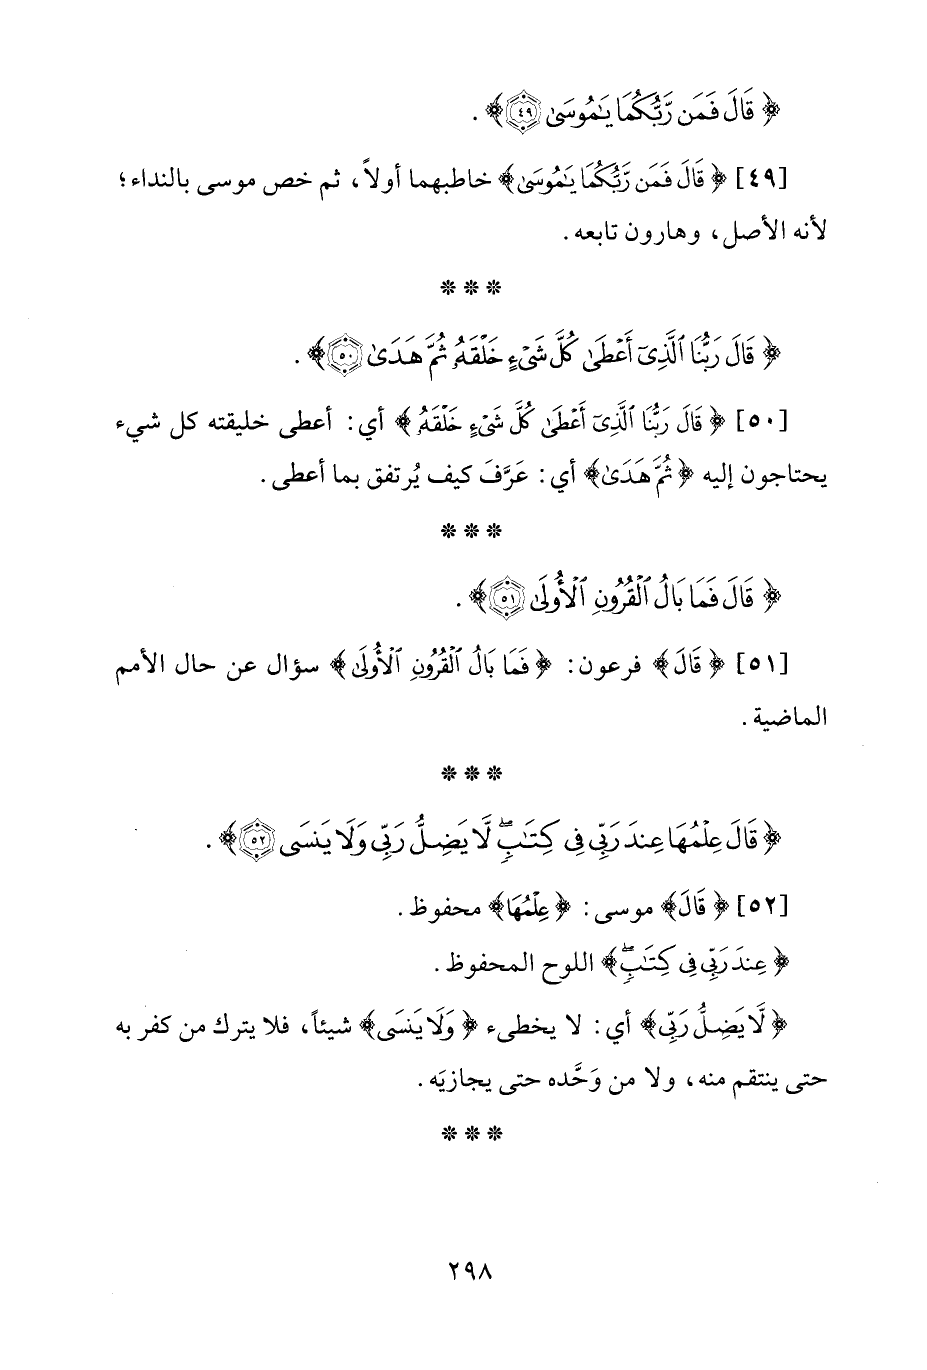 ﴿ قَالَ فَمَن رَّبُّكُمَا يَـٰمُوسَىٰ ٤٩ ﴾ .
[٤٩] ﴿ قَالَ فَمَن رَّبُّكُمَا يَـٰمُوسَىٰ﴾ خاطبهما أولاً، ثم خص موسى بالنداء؛
لأنه الأصل، وهارون تابعه .
* * *
﴿ قَالَ رَبُّنَا ٱلَّذِىٓ أَعْطَىٰ كُلَّ شَىْءٍ خَلْقَهُۥ ثُمَّ هَدَىٰ ٥٠ ﴾ .
[٥٠] ﴿ قَالَ رَبُّنَا ٱلَّذِىٓ أَعْطَىٰ كُلَّ شَىْءٍ خَلْقَهُۥ ﴾ أي: أعطى خليقته كل شيء
يحتاجون إليه ﴿ ثُمَّ هَدَىٰ﴾ أي: عَرَّفَ كيف يُرتفق بما أعطى .
* * *
﴿ قَالَ فَمَا بَالُ ٱلْقُرُونِ ٱلْأُولَىٰ ٥١ ﴾ .
[٥١] ﴿ قَالَ﴾ فرعون: ﴿ فَمَا بَالُ ٱلْقُرُونِ ٱلْأُولَىٰ﴾ سؤال عن حال الأمم
الماضية .
* * *
﴿ قَالَ عِلْمُهَا عِندَ رَبِّى فِى كِتَـٰبٍۖ لَّا يَضِلُّ رَبِّى وَلَا يَنسَى ٥٢ ﴾ .
[٥٢] ﴿ قَالَ﴾ موسى: ﴿ عِلْمُهَا﴾ محفوظ .
﴿ عِندَ رَبِّى فِى كِتَـٰبٍۖ﴾ اللوح المحفوظ .
﴿ لَّا يَضِلُّ رَبِّى﴾ أي: لا يخطىء ﴿ وَلَا يَنسَى﴾ شيئاً، فلا يترك من كفر به
حتى ينتقم منه، ولا من وَحَّده حتى يجازيَه .
* * *
٢٩٨